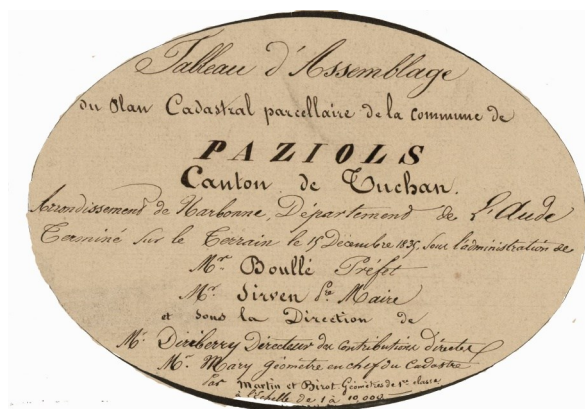 Tableau d'Assemblage
du Plan Cadastral parcellaire de la commune de
PAZIOLS
Canton de Tuchan.
Arrondissement de Narbonne, Département de L'Aude
Terminé sur le Terrain le 15 Décembre 1835, sous l'administration de
Mr. Boullé Préfet
Mr. Sirven Maire
et sous la Direction de
Mr. Direberry Directeur des Contributions Directes
Mr. Mary Géomètre en chef du Cadastre
Par Martin et Birot Géomètres de 1re classe
à l'échelle de 1 à 10,000